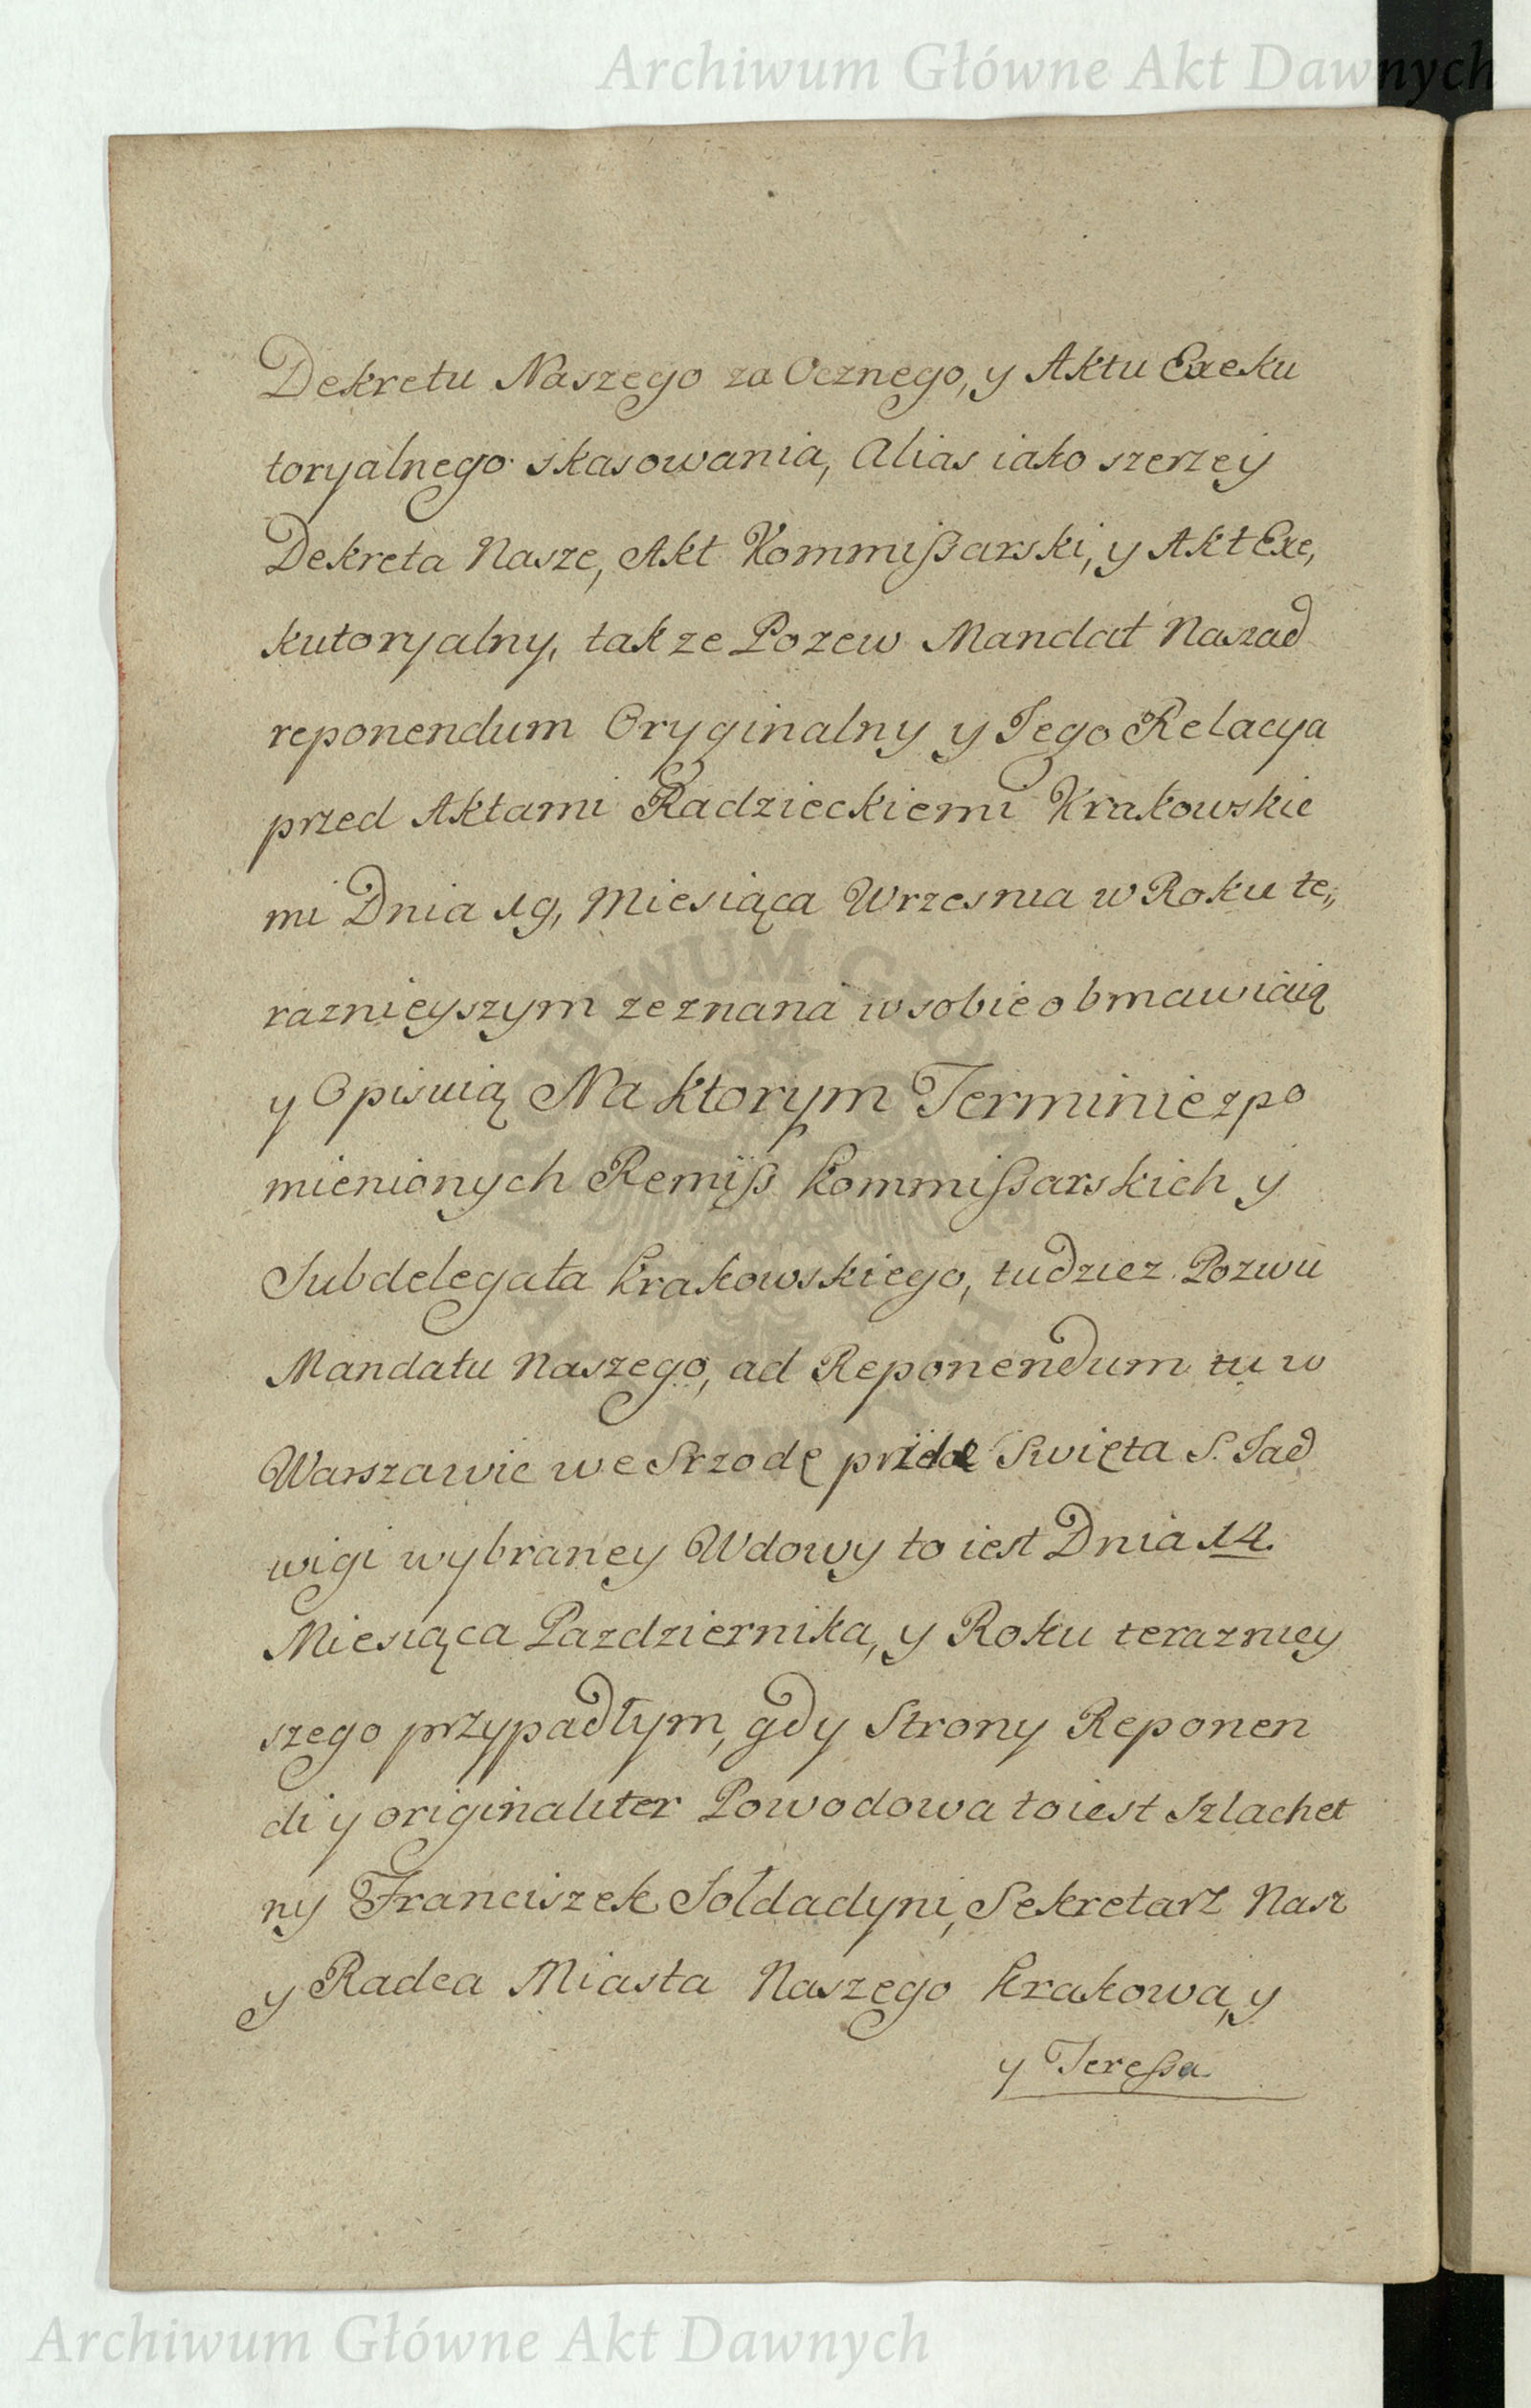 Archiwum Główne Akt Dawnych
Dekretu Naszego za Ocznego, y Aktu Exeku
toryalnego skasowania, Alias iako szerzey
Dekreta Nasze, Akt Kommißarski, y Akt Exe,
kutoryalny, takze Pozew Mandat Nasz ad
reponendum Oryginalny y Jego Relacya
przed Aktami Radzieckiemi Krakowskie
mi Dnia 19, Miesiąca Wrzesnia w Roku te,,
raznieyszym zeznana w sobie obmawiaią
y Opisuią Na ktorym Terminie zpo
mienionych Remiß kommißarskich y
Subdelegata krakowskiego, tudziez Pozwu
Mandatu Naszego, ad Reponendum tu w
Warszawie we Srzodę Swięta S. Jad
wigi wybraney Wdowy to iest Dnia 14.
Miesiąca Pazdziernika, y Roku terazniey
szego przypadłym, gdy Strony Reponen
di y originaliter Powodowa to iest Szlachet
ny Franciszek Soldadyni, Sekretarz Nasz
y Radca Miasta Naszego krakowa, y
y Tereßa
ARCHIWUM GŁÓWNE AKT DAWNYCH
Archiwum Główne Akt Dawnych